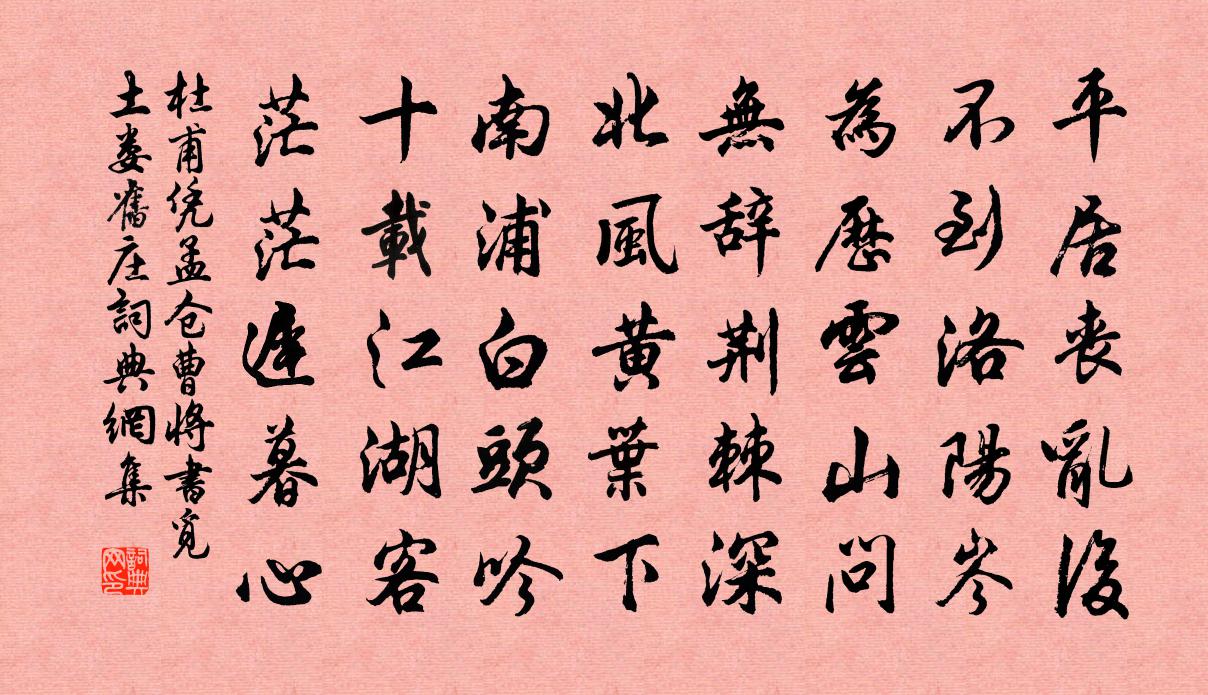 平居喪亂後
不到洛陽岑
為歷雲山問
無辞荆棘深
北風黄葉下
南浦白頭吟
十載江湖客
茫茫遲暮心
杜甫凭孟仓曹將書觅
土娄舊庄詞典網集
詞典
网印